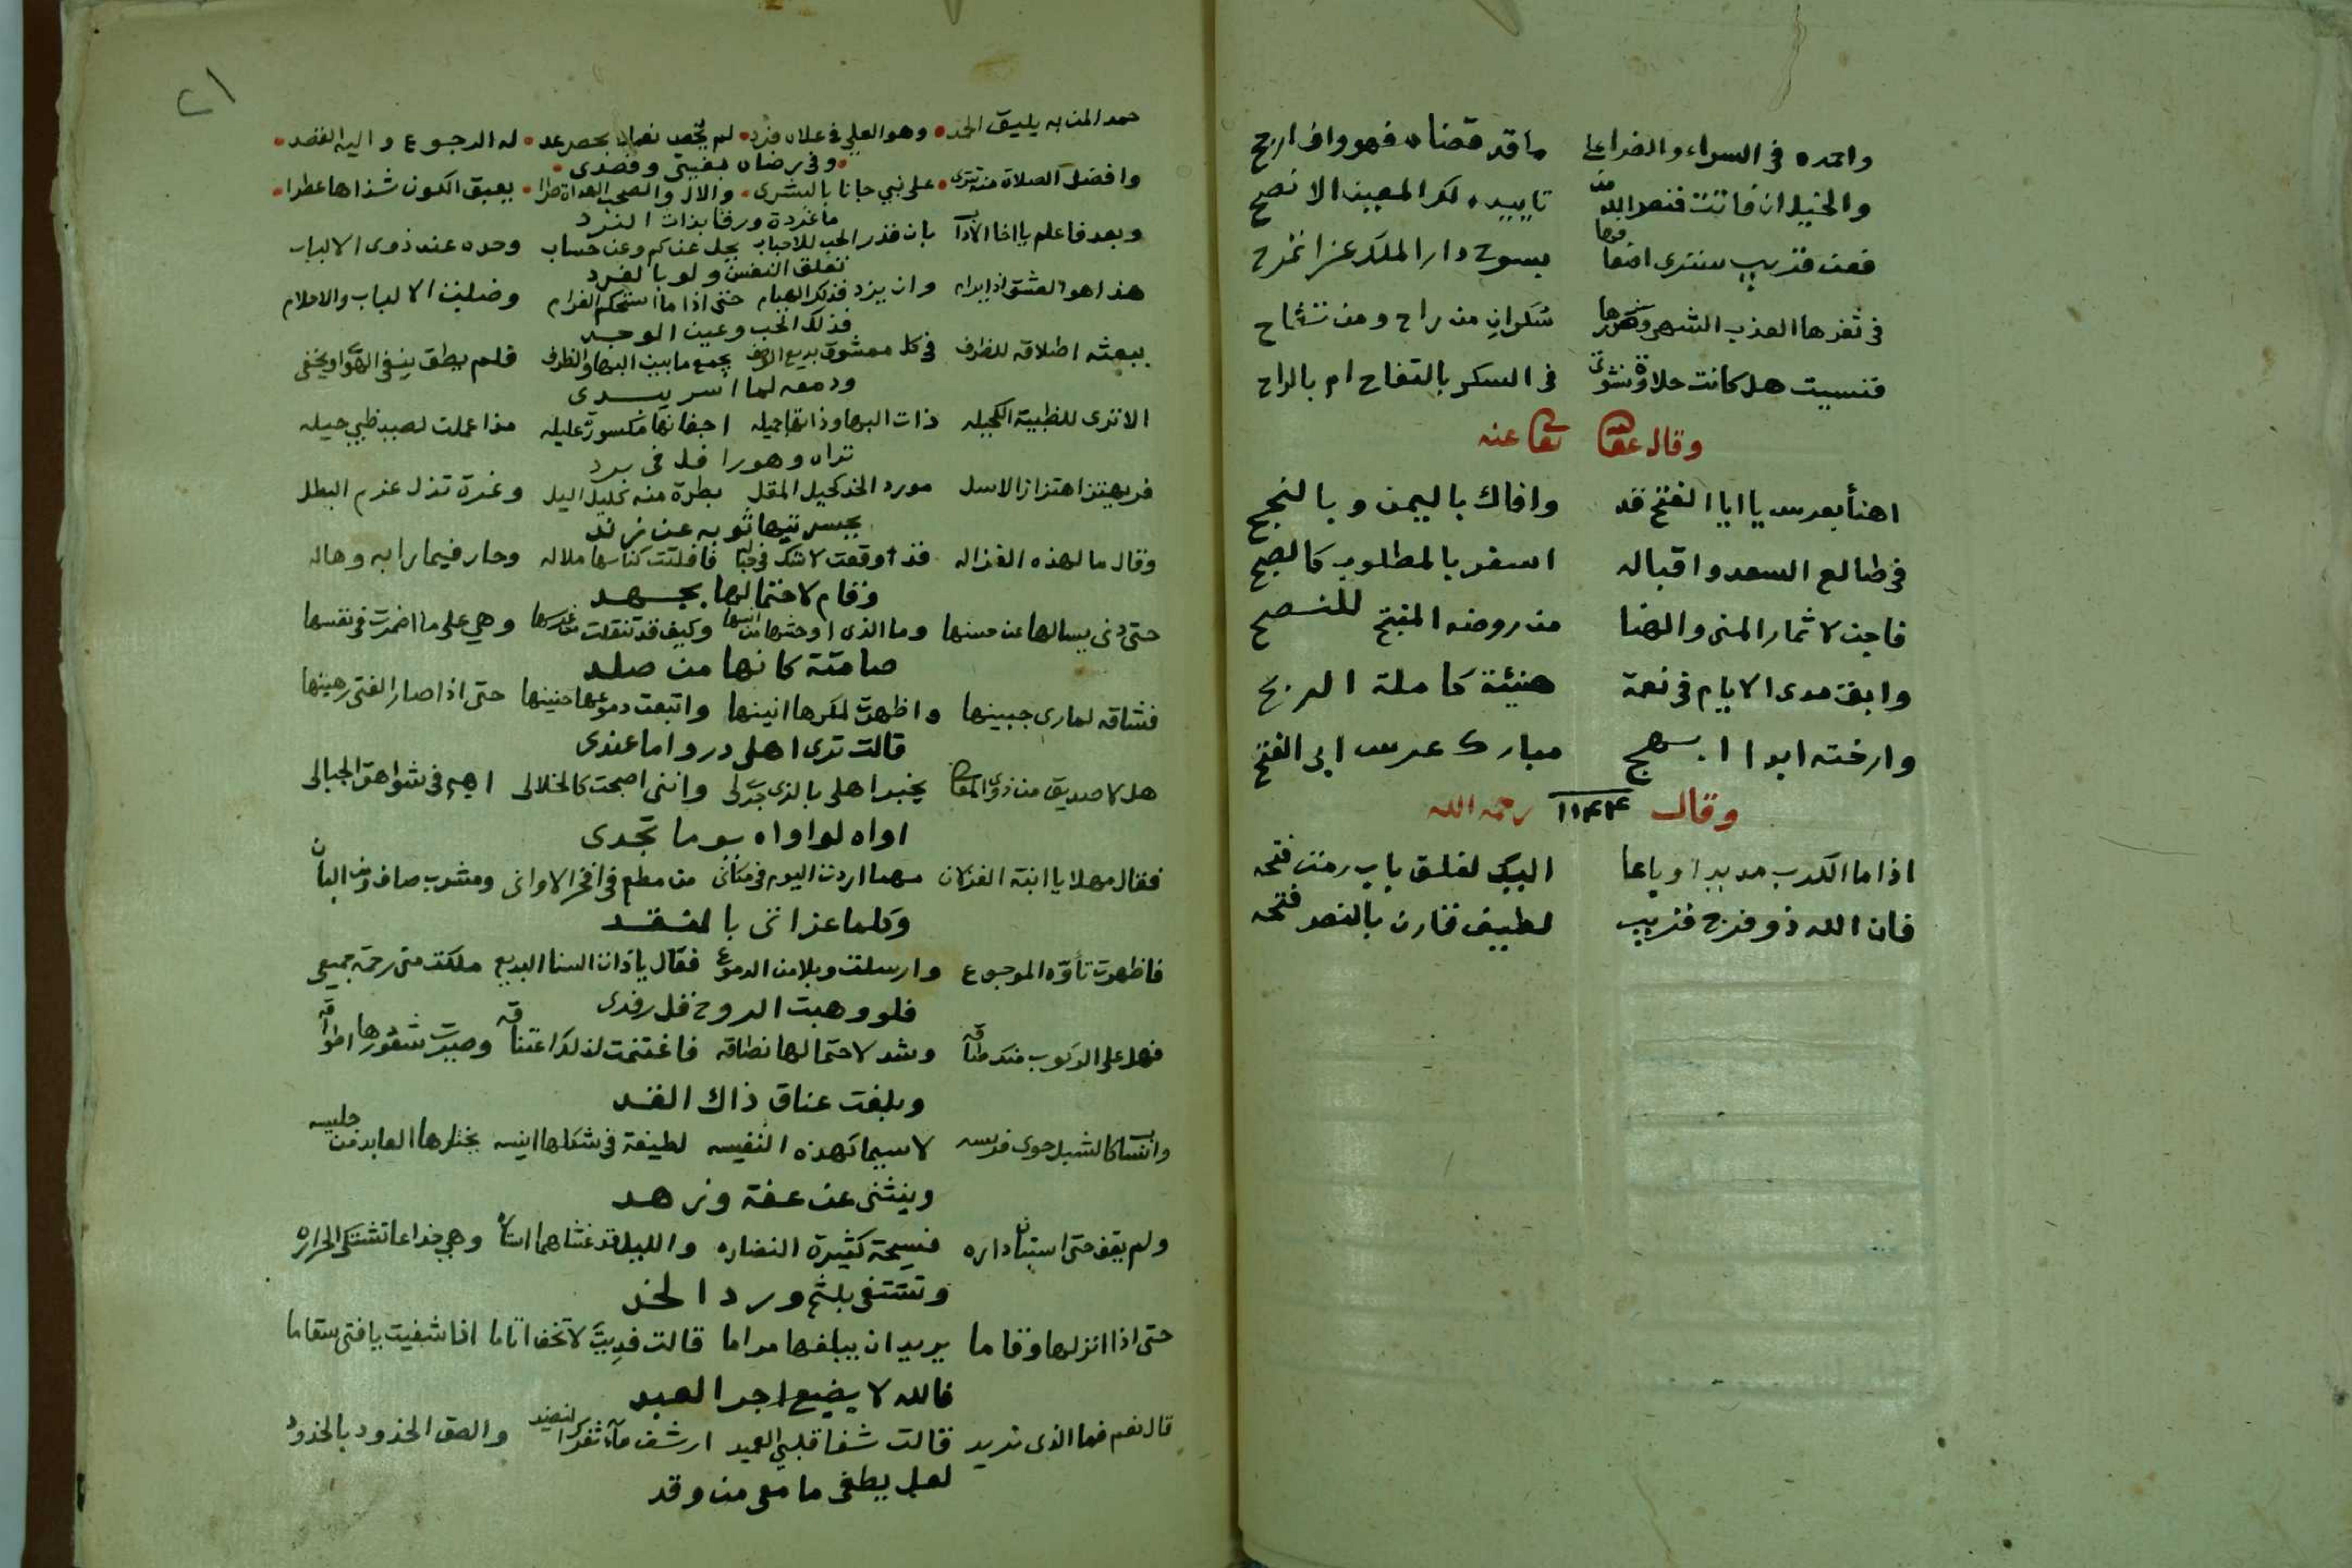 واحمده في السراء والضراء على ما قد قضاه فهو واف اربح
والخيل ان فاتت فنصر الله من تاييده لك المعين الانصح
فعن قريب سنترى اضعافها بسوح دار الملك عزا تمرح
في ثغرها العذب الشهي وشعرها سكران من راح ومن تفاح
فنسيت هل كانت حلاوة نشوتي في السكر بالتفاح ام بالراح
وقال عفا الله تعالى عنه
اهنأ بعرس يا ابا الفتح قد وافاك باليمن وبالنجح
في طالع السعد واقباله اسفر بالمطلوب كالصبح
فاجن لاثمار المنى والهنا من روضه المفتح للنصح
وابق مدى الايام في نعمة هنيئة كاملة الربح
وارخته ابدا ابهج مبارك عرس ابي الفتح
وقال ١١٤٤ رحمه الله
اذا ما الكرب مد يدا وباعا اليك لغلق باب رمت فتحه
فان الله ذو فرج قريب لطيف قارن بالنصر فتحه
٢١
حمد المن به يليق الحمد وهو العلي في علاه فرد لم تحص نعماه بحصر عد له الرجوع واليه القصد
وفي رضاه بغيتي وقصدي
وافضل الصلاة منه تترى على نبي جانا بالبشرى والال والصحب الهداة طرا يعبق الكون شذاها عطرا
ما غردة ورقا بذات الرند
وبعد فاعلم يا اخا الاداب بان قدر الحب للاحباب يجل عن كم وعن حساب وحده عند ذوي الالباب
تعلق النفس ولو بالفرد
هذا هو العشق اذا يرام وان يزد فذلك الهيام حتى اذا ما استحكم الغرام وضلت الالباب والاحلام
فذلك الحب وعين الوجد
يبعثه اطلاقه للطرف في كل معشوق بديع الوصف يجمع ما بين البها والظرف فلم يطق ينفي الهوى او يخفي
ودمعه لما اسر يبدي
الا ترى للظبية الكحيله ذات البها وذاتها جميله اجفانها مكسورة عليله مذ اعملت لصيد ظبي حيله
تراه وهو رافل في برد
فر يهتز اهتزاز الاسل مورد الخد كحيل المقل بطرة منه كليل اليل وغرة تذل عزم البطل
يجسر تيها ثوبه عن زند
وقال ما لهذه الغزاله قد اوقعت لا شك في حباله فافلتت كناسها ملاله وحار فيما رابه وهاله
وقام لاحتمالها بجهد
حتى دنى يسالها عن حسنها وما الذي اوحشها من انسها وكيف قد تنقلت من غرسها وهي على ما اضمرت في نفسها
صامتة كانها من صلد
فشاقه لما رى جبينها واظهرت لمكرها انينها واتبعت دموعها حنينها حتى اذا صار الفتى رهينها
قالت ترى اهلي دروا ما عندي
هل لا صديق من ذوي المعالي يخبر اهلي بالذي جرى لي وانني اصبحت كالخلال اهيم في شواهق الجبال
اواه لو اواه يوما تجدي
فقال مهلا يا ابنة الغزلان مهما اردت اليوم في مكاني من مطعم في افخر الاواني ومشرب صاف ومن البان
وكلما عز اتى بالنقد
فاظهرت تأوه الموجوع وارسلت وبلا من الدموع فقال يا ذات السنا البديع ملكت مني رحمة جميعي
فلو وهبت الروح قل رفدي
فهل على الركوب منك طاقه وشد لاحتمالها نطاقه فاغتنمت لذلك اعتناقه وصيرت شعورها اطواقه
وبلغت عناق ذاك القد
وانساب كالشبل حوى فريسه لا سيما كهذه النفيسه لطيفة في شكلها انيسه يختارها العابد من جليسه
وينثني عن عفة وزهد
ولم يقف حتى استبان داره فسيحة كثيرة النضاره والليل قد غشاهما استاره وهي خداعا تشتكي الحراره
وتشتفي بلثم ورد الخد
حتى اذا انزلها وقاما يريد ان يبلغها مراما قالت فديت لا تخف اثاما اذا شفيت يا فتى سقاما
فالله لا يضيع اجر العبد
قال نعم فما الذي تريد قالت شفا قلبي العميد ارشف ماء ثغرك النضيد والصق الخدود بالخدود
لعل يطفى ما معي من وقد